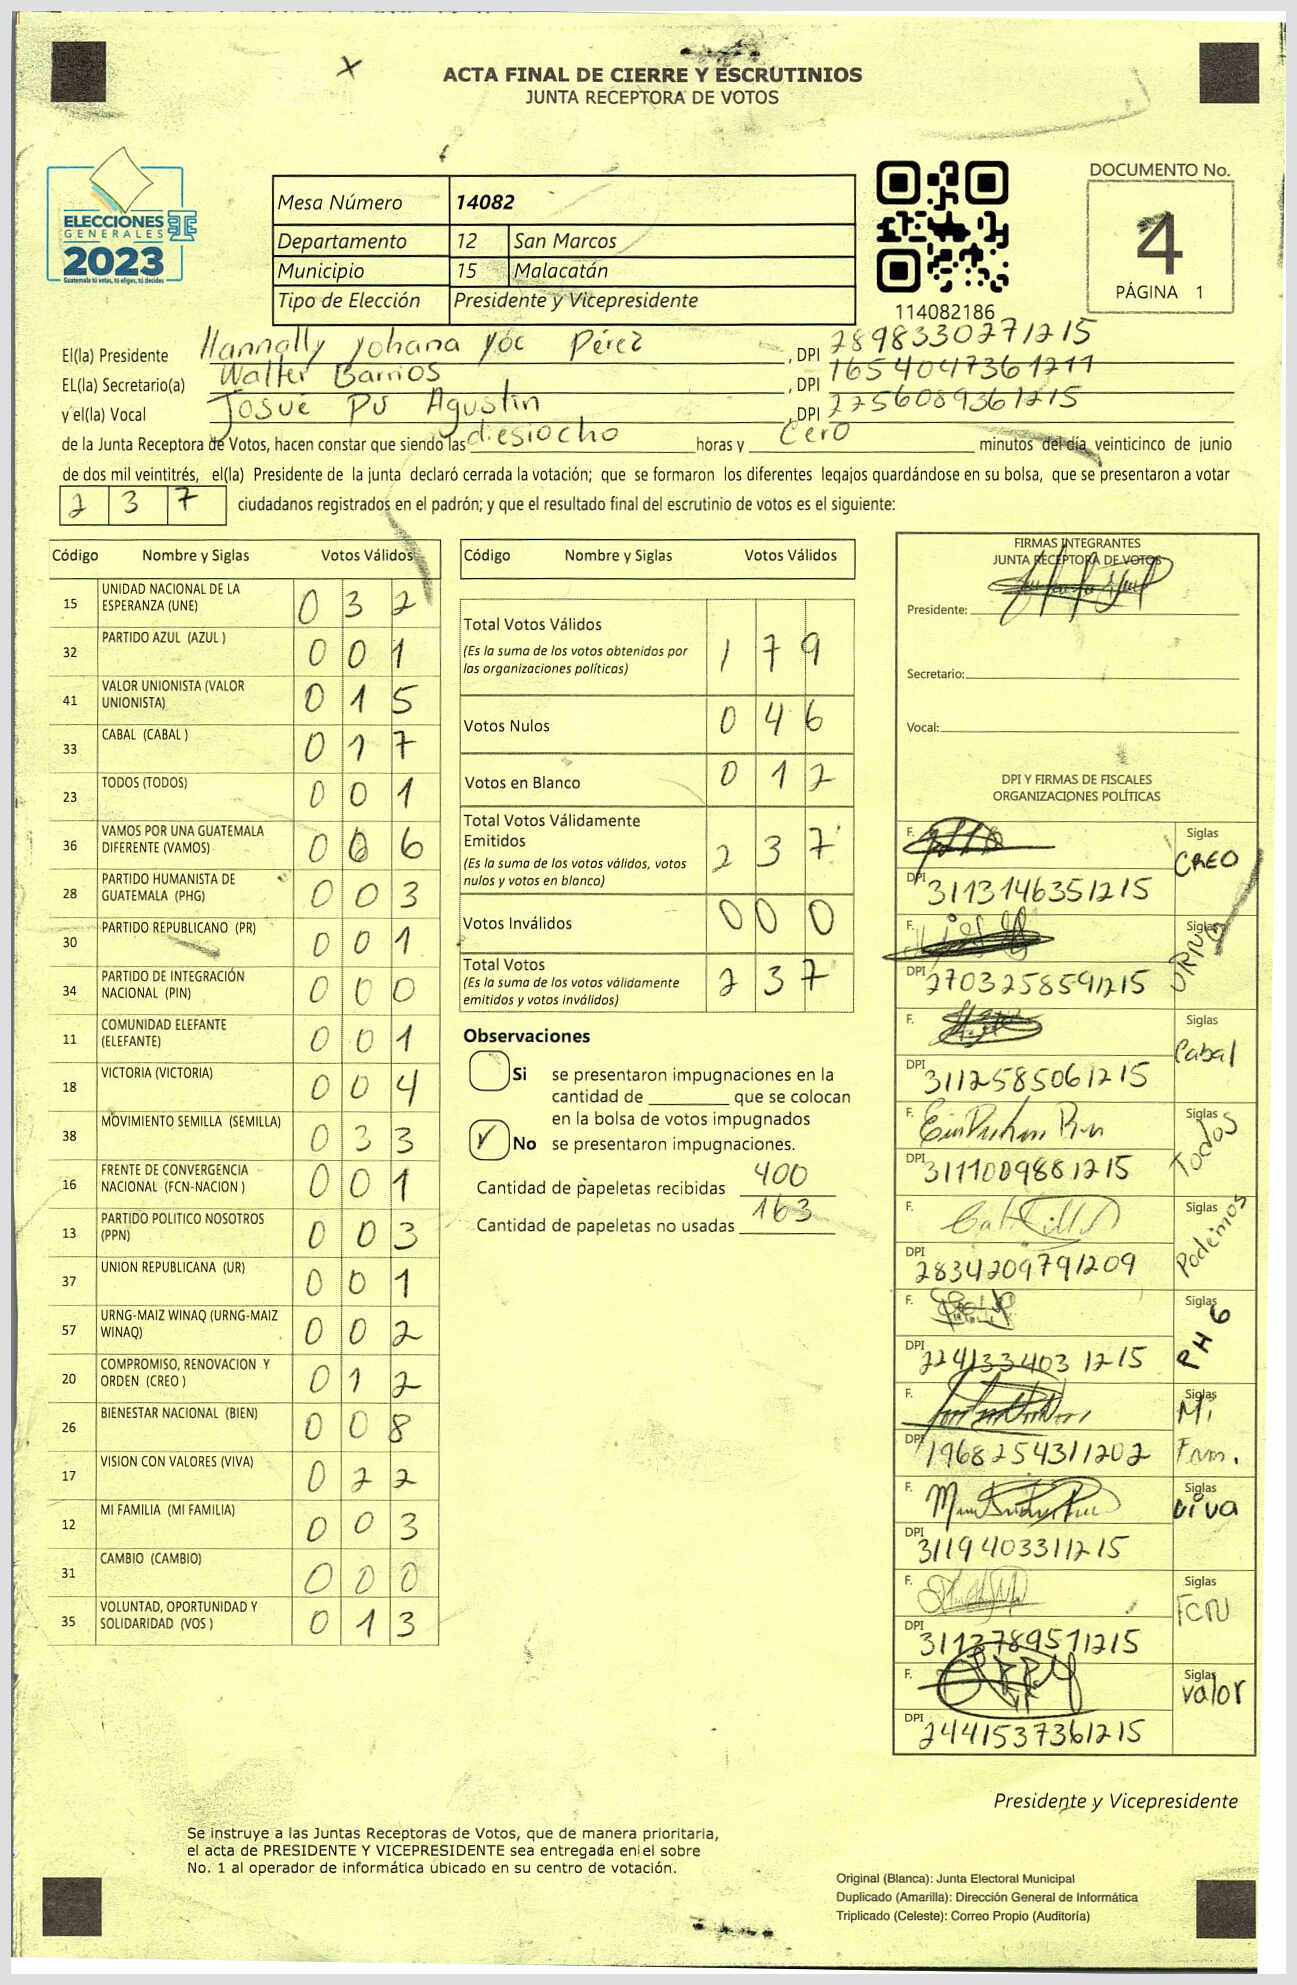 ACTA FINAL DE CIERRE Y ESCRUTINIOS
JUNTA RECEPTORA DE VOTOS
ELECCIONES
GENERALES
2023
Guatemala tú votas, tú eliges, tú decides
Mesa Número 14082
Departamento 12 San Marcos
Municipio 15 Malacatán
Tipo de Elección Presidente y Vicepresidente
114082186
DOCUMENTO No.
4
PÁGINA 1
El(la) Presidente Hannally Yohana Yóc Pérez, DPI 2898330271215
EL(la) Secretario(a) Walter Barrios, DPI 1654047361211
y el(la) Vocal Josué Pú Agustín, DPI 2256089361215
de la Junta Receptora de Votos, hacen constar que siendo las diesiocho horas y cero minutos del día veinticinco de junio
de dos mil veintitrés, el(la) Presidente de la junta declaró cerrada la votación; que se formaron los diferentes legajos guardándose en su bolsa, que se presentaron a votar
237 ciudadanos registrados en el padrón; y que el resultado final del escrutinio de votos es el siguiente:
Código Nombre y Siglas Votos Válidos
15 UNIDAD NACIONAL DE LA ESPERANZA (UNE) 032
32 PARTIDO AZUL (AZUL ) 001
41 VALOR UNIONISTA (VALOR UNIONISTA) 015
33 CABAL (CABAL ) 017
23 TODOS (TODOS) 001
36 VAMOS POR UNA GUATEMALA DIFERENTE (VAMOS) 006
28 PARTIDO HUMANISTA DE GUATEMALA (PHG) 003
30 PARTIDO REPUBLICANO (PR) 001
34 PARTIDO DE INTEGRACIÓN NACIONAL (PIN) 000
11 COMUNIDAD ELEFANTE (ELEFANTE) 001
18 VICTORIA (VICTORIA) 004
38 MOVIMIENTO SEMILLA (SEMILLA) 033
16 FRENTE DE CONVERGENCIA NACIONAL (FCN-NACION ) 001
13 PARTIDO POLITICO NOSOTROS (PPN) 003
37 UNION REPUBLICANA (UR) 001
57 URNG-MAIZ WINAQ (URNG-MAIZ WINAQ) 002
20 COMPROMISO, RENOVACION Y ORDEN (CREO ) 012
26 BIENESTAR NACIONAL (BIEN) 008
17 VISION CON VALORES (VIVA) 022
12 MI FAMILIA (MI FAMILIA) 003
31 CAMBIO (CAMBIO) 000
35 VOLUNTAD, OPORTUNIDAD Y SOLIDARIDAD (VOS ) 013
Código Nombre y Siglas Votos Válidos
Total Votos Válidos 179
(Es la suma de los votos obtenidos por
las organizaciones políticas)
Votos Nulos 046
Votos en Blanco 012
Total Votos Válidamente
Emitidos 237
(Es la suma de los votos válidos, votos
nulos y votos en blanco)
Votos Inválidos 000
Total Votos 237
(Es la suma de los votos válidamente
emitidos y votos inválidos)
Observaciones
Si se presentaron impugnaciones en la
cantidad de ________ que se colocan
en la bolsa de votos impugnados
✓ No se presentaron impugnaciones.
Cantidad de papeletas recibidas 400
Cantidad de papeletas no usadas 163
FIRMAS INTEGRANTES
JUNTA RECEPTORA DE VOTOS
Presidente:
Secretario:
Vocal:
DPI Y FIRMAS DE FISCALES
ORGANIZACIONES POLÍTICAS
F. Siglas CREO
DPI 3113146351215
F. Siglas URNG
DPI 2703258591215
F. Siglas Cabal
DPI 3112585061215
F. Siglas Todos
DPI 3111009881215
F. Siglas Podemos
DPI 2834209791209
F. Siglas PHG
DPI 2241334031215
F. Siglas Mi Fam.
DPI 1968254311202
F. Siglas Viva
DPI 3119403311215
F. Siglas FCN
DPI 3113789571215
F. Siglas valor
DPI 2441537361215
Presidente y Vicepresidente
Se instruye a las Juntas Receptoras de Votos, que de manera prioritaria,
el acta de PRESIDENTE Y VICEPRESIDENTE sea entregada en el sobre
No. 1 al operador de informática ubicado en su centro de votación.
Original (Blanca): Junta Electoral Municipal
Duplicado (Amarilla): Dirección General de Informática
Triplicado (Celeste): Correo Propio (Auditoría)